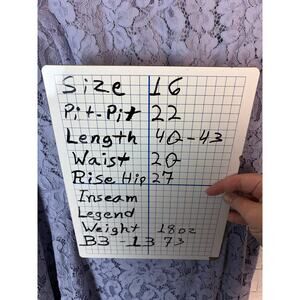 Size 16
Pit-Pit 22
Length 40-43
Waist 20
Rise Hip 27
Inseam
Legend
Weight 18oz
B3-1373